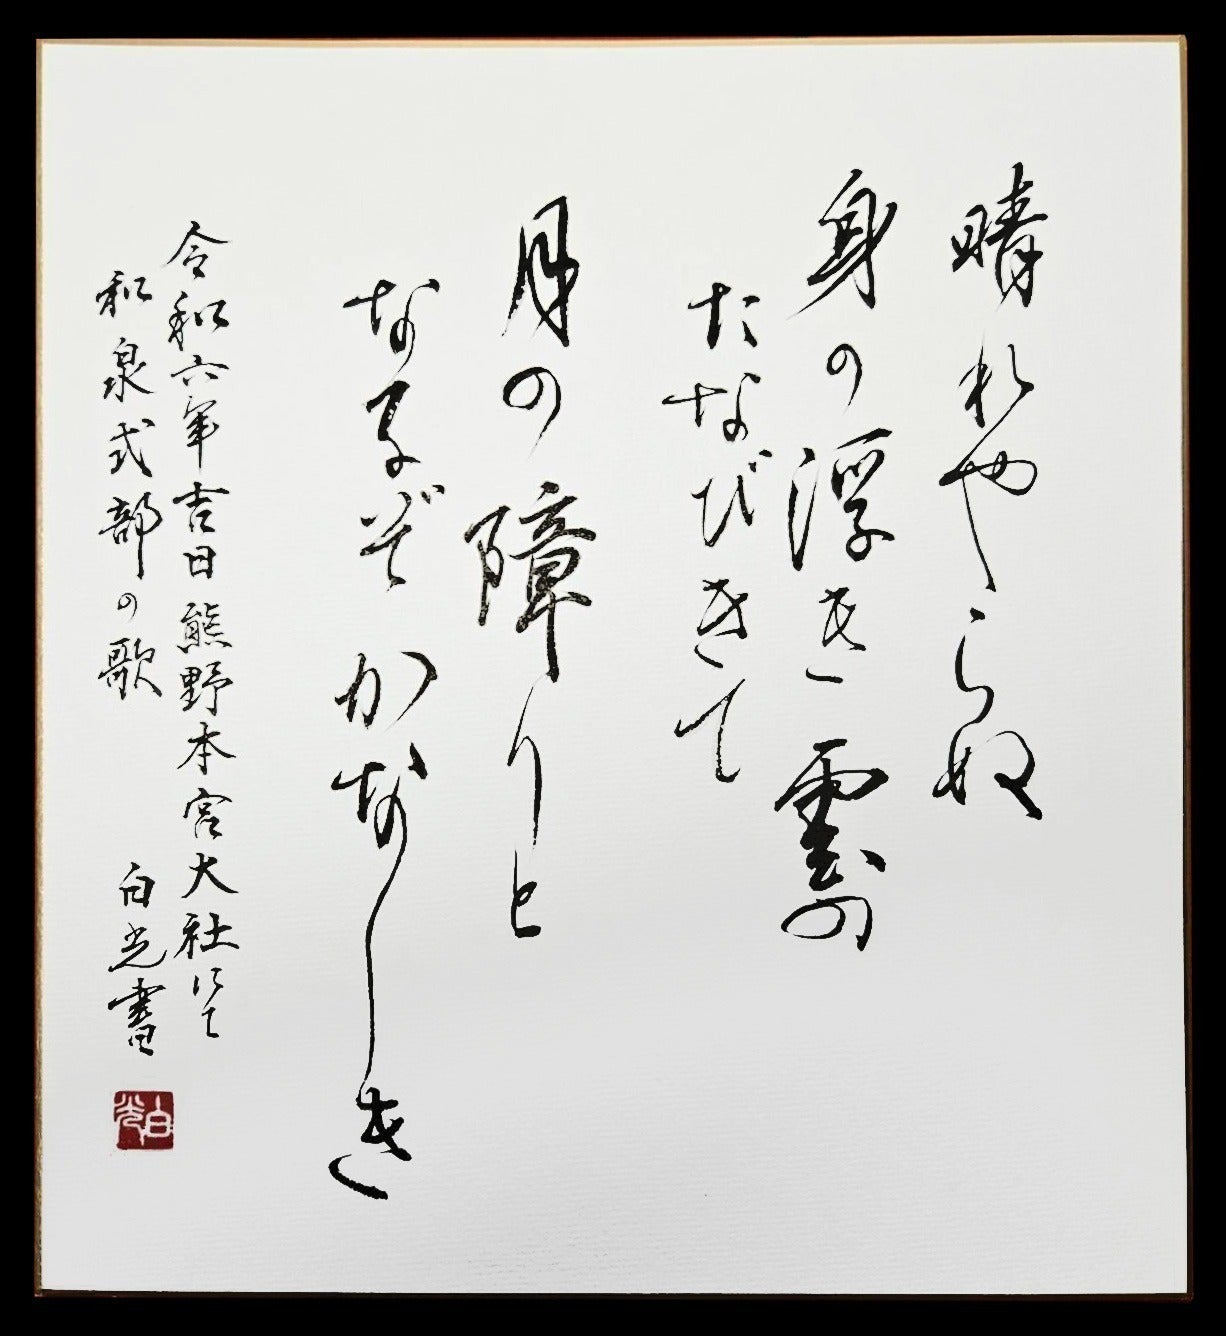 晴れやらぬ
身の浮き雲の
たなびきて
月の障りと
なるぞかなしき
令和六年吉日熊野本宮大社にて
和泉式部の歌
白光書
白光